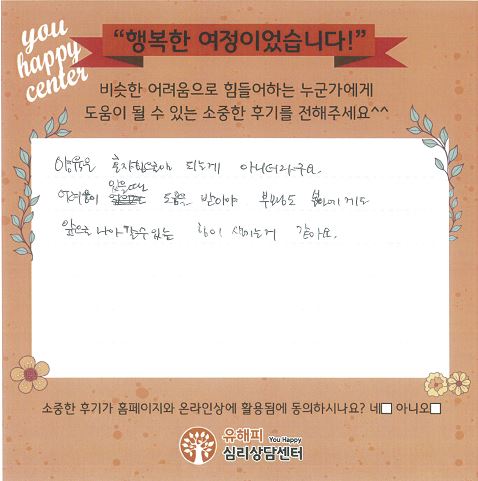 you
happy
center
“행복한 여정이었습니다!”
비슷한 어려움으로 힘들어하는 누군가에게
도움이 될 수 있는 소중한 후기를 전해주세요^^
혼자힘으로만 되는게 아니더라구요.
있을때는
어려움이 도움을 받아야
앞으로 나아갈수있는 힘이 생기는게 같아요.
소중한 후기가 홈페이지와 온라인상에 활용됨에 동의하시나요? 네□ 아니오□
유해피 You Happy
심리상담센터